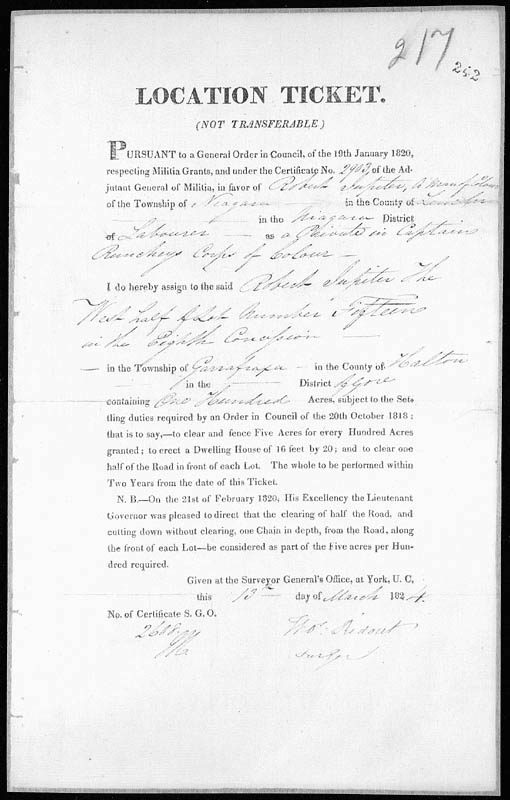 217
252
LOCATION TICKET.
(NOT TRANSFERABLE)
PURSUANT to a General Order in Council, of the 19th January 1820,
respecting Militia Grants, and under the Certificate No. 2903 of the Ad-
jutant General of Militia, in favor of Robert Jupiter, a man of Colour
of the Township of Niagara in the County of Lincoln
in the Niagara District
of Labourer — as a Private in Captain
Runcheys Corps of Colour —
I do hereby assign to the said Robert Jupiter the
West half of Lot Number Fifteen
in the Eighth Concession —
— in the Township of Garrafraxa — in the County of Halton
in the District of Gore
containing One Hundred Acres, subject to the Set-
tling duties required by an Order in Council of the 20th October 1818;
that is to say,—to clear and fence Five Acres for every Hundred Acres
granted; to erect a Dwelling House of 16 feet by 20; and to clear one
half of the Road in front of each Lot. The whole to be performed within
Two Years from the date of this Ticket.
N. B.—On the 21st of February 1820, His Excellency the Lieutenant
Governor was pleased to direct that the clearing of half the Road, and
cutting down without clearing, one Chain in depth, from the Road, along
the front of each Lot—be considered as part of the Five acres per Hun-
dred required.
Given at the Surveyor General's Office, at York, U. C.
this 13th day of March 1824.
No. of Certificate S. G. O.
Thos. Ridout
Sur Genl